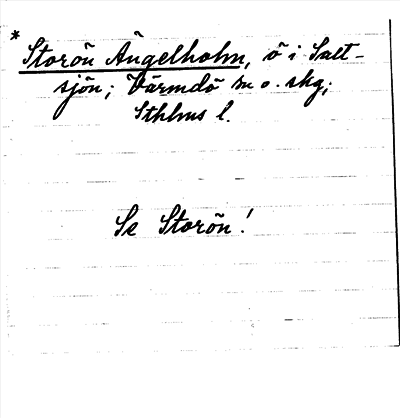 * Storön Ängelholm, ö i Salt-
sjön; Värmdö sn o. skg;
Sthlms l.
Se Storön!